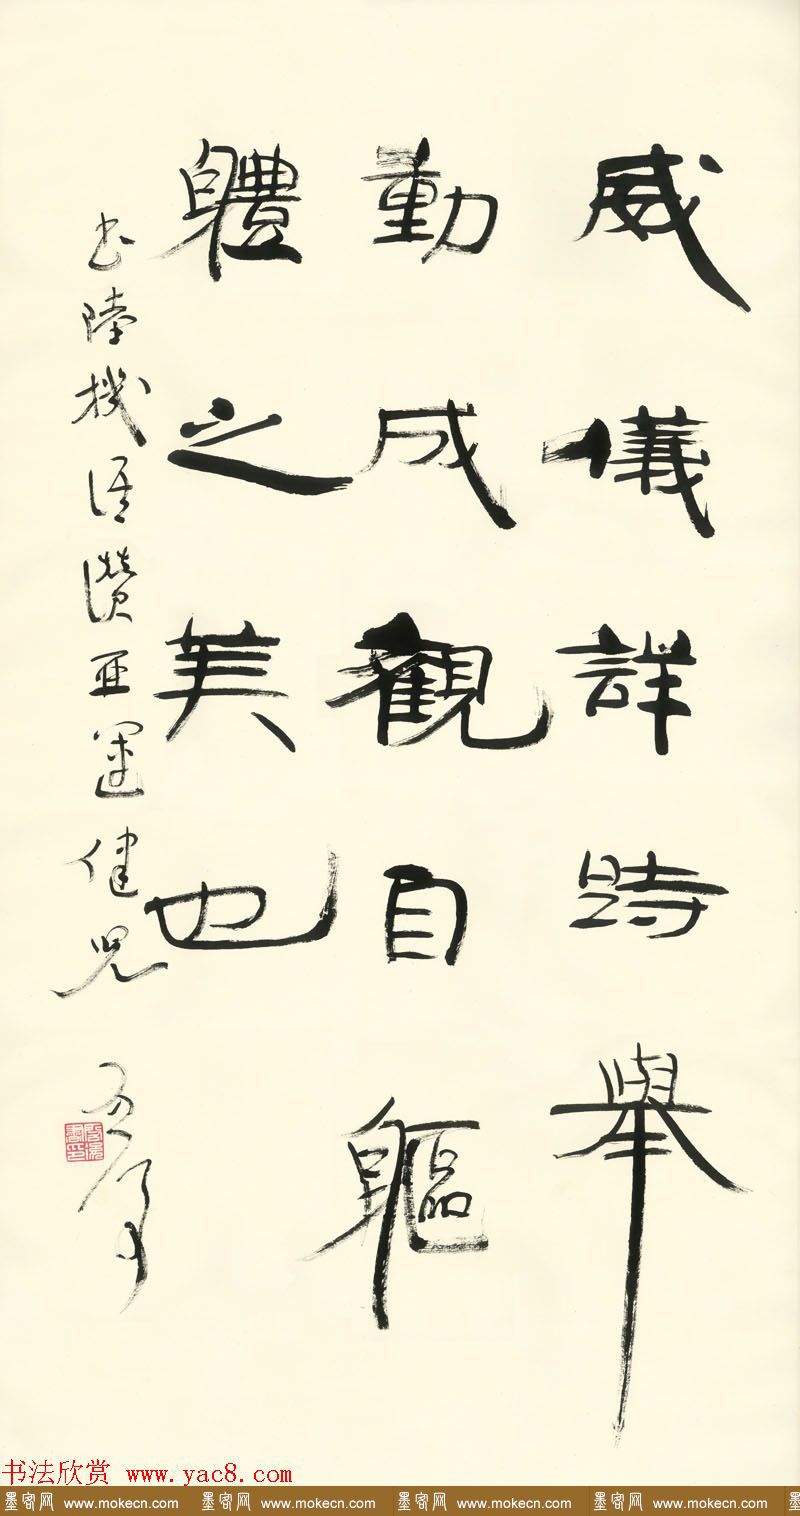 威儀詳跱舉
動成觀自軀
軆之美也
书陸機语讚亚運健兒
书法欣赏 www.yac8.com
墨客网 www.mokecn.com 墨客网 www.mokecn.com 墨客网 www.mokecn.com 墨客网 www.mokecn.com